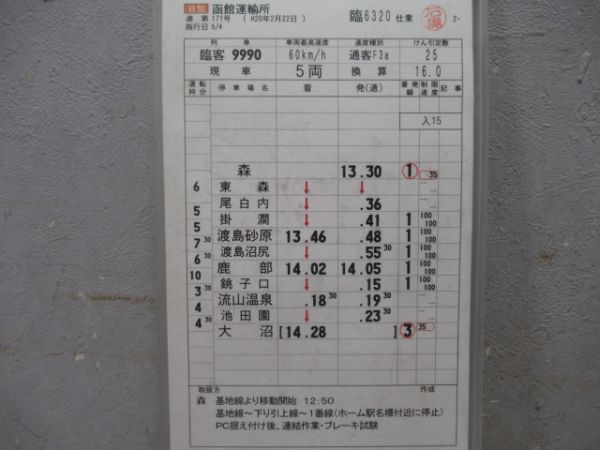 函館運輸所
運 第171号 ( H20年2月22日 )
施行日 5/4
臨6320 仕業
2-
列車 車両最高速度 速度種別 けん引定数
臨客 9990 60km/h 通客F3a 25
現車 5両 換算 16.0
運転時分 停車場名 着 発(通) 着発線 制限速度 記事
入15
森 13.30 1 35
6 東森 ↓ ↓
尾白内 ↓ .36
5 掛澗 ↓ .41 1 100 100
5 渡島砂原 13.46 .48 1 100 100
7 30 渡島沼尻 ↓ .55 30 1 100 100
6 30 鹿部 14.02 14.05 1 100 100
10 銚子口 ↓ .15 1 100 100
3 30 流山温泉 .18 30 .19 30
4 池田園 ↓ .23 30
4 30 大沼 [14.28 ] 3 35
取扱方 作成
森 基地線より移動開始 12:50
基地線～下り引上線～1番線(ホーム駅名標付近に停止)
PC据え付け後、連結作業・ブレーキ試験